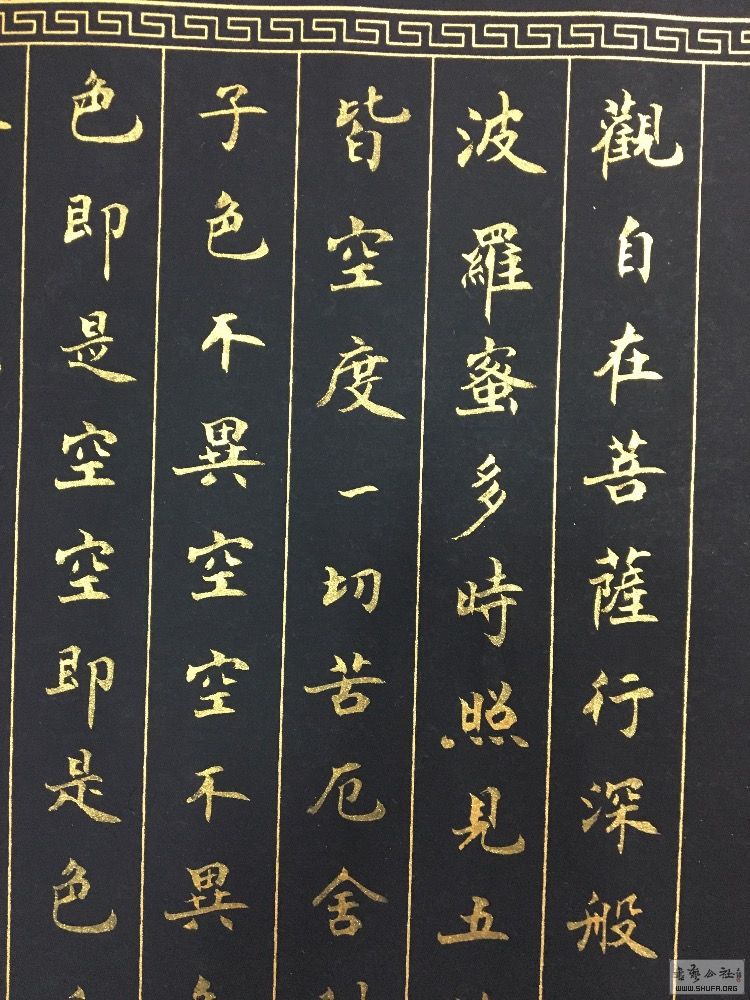 觀自在菩薩行深般
波羅蜜多時照見五
皆空度一切苦厄舍
子色不異空空不異
色即是空空即是色
書藝公社
WWW.SHUFA.ORG